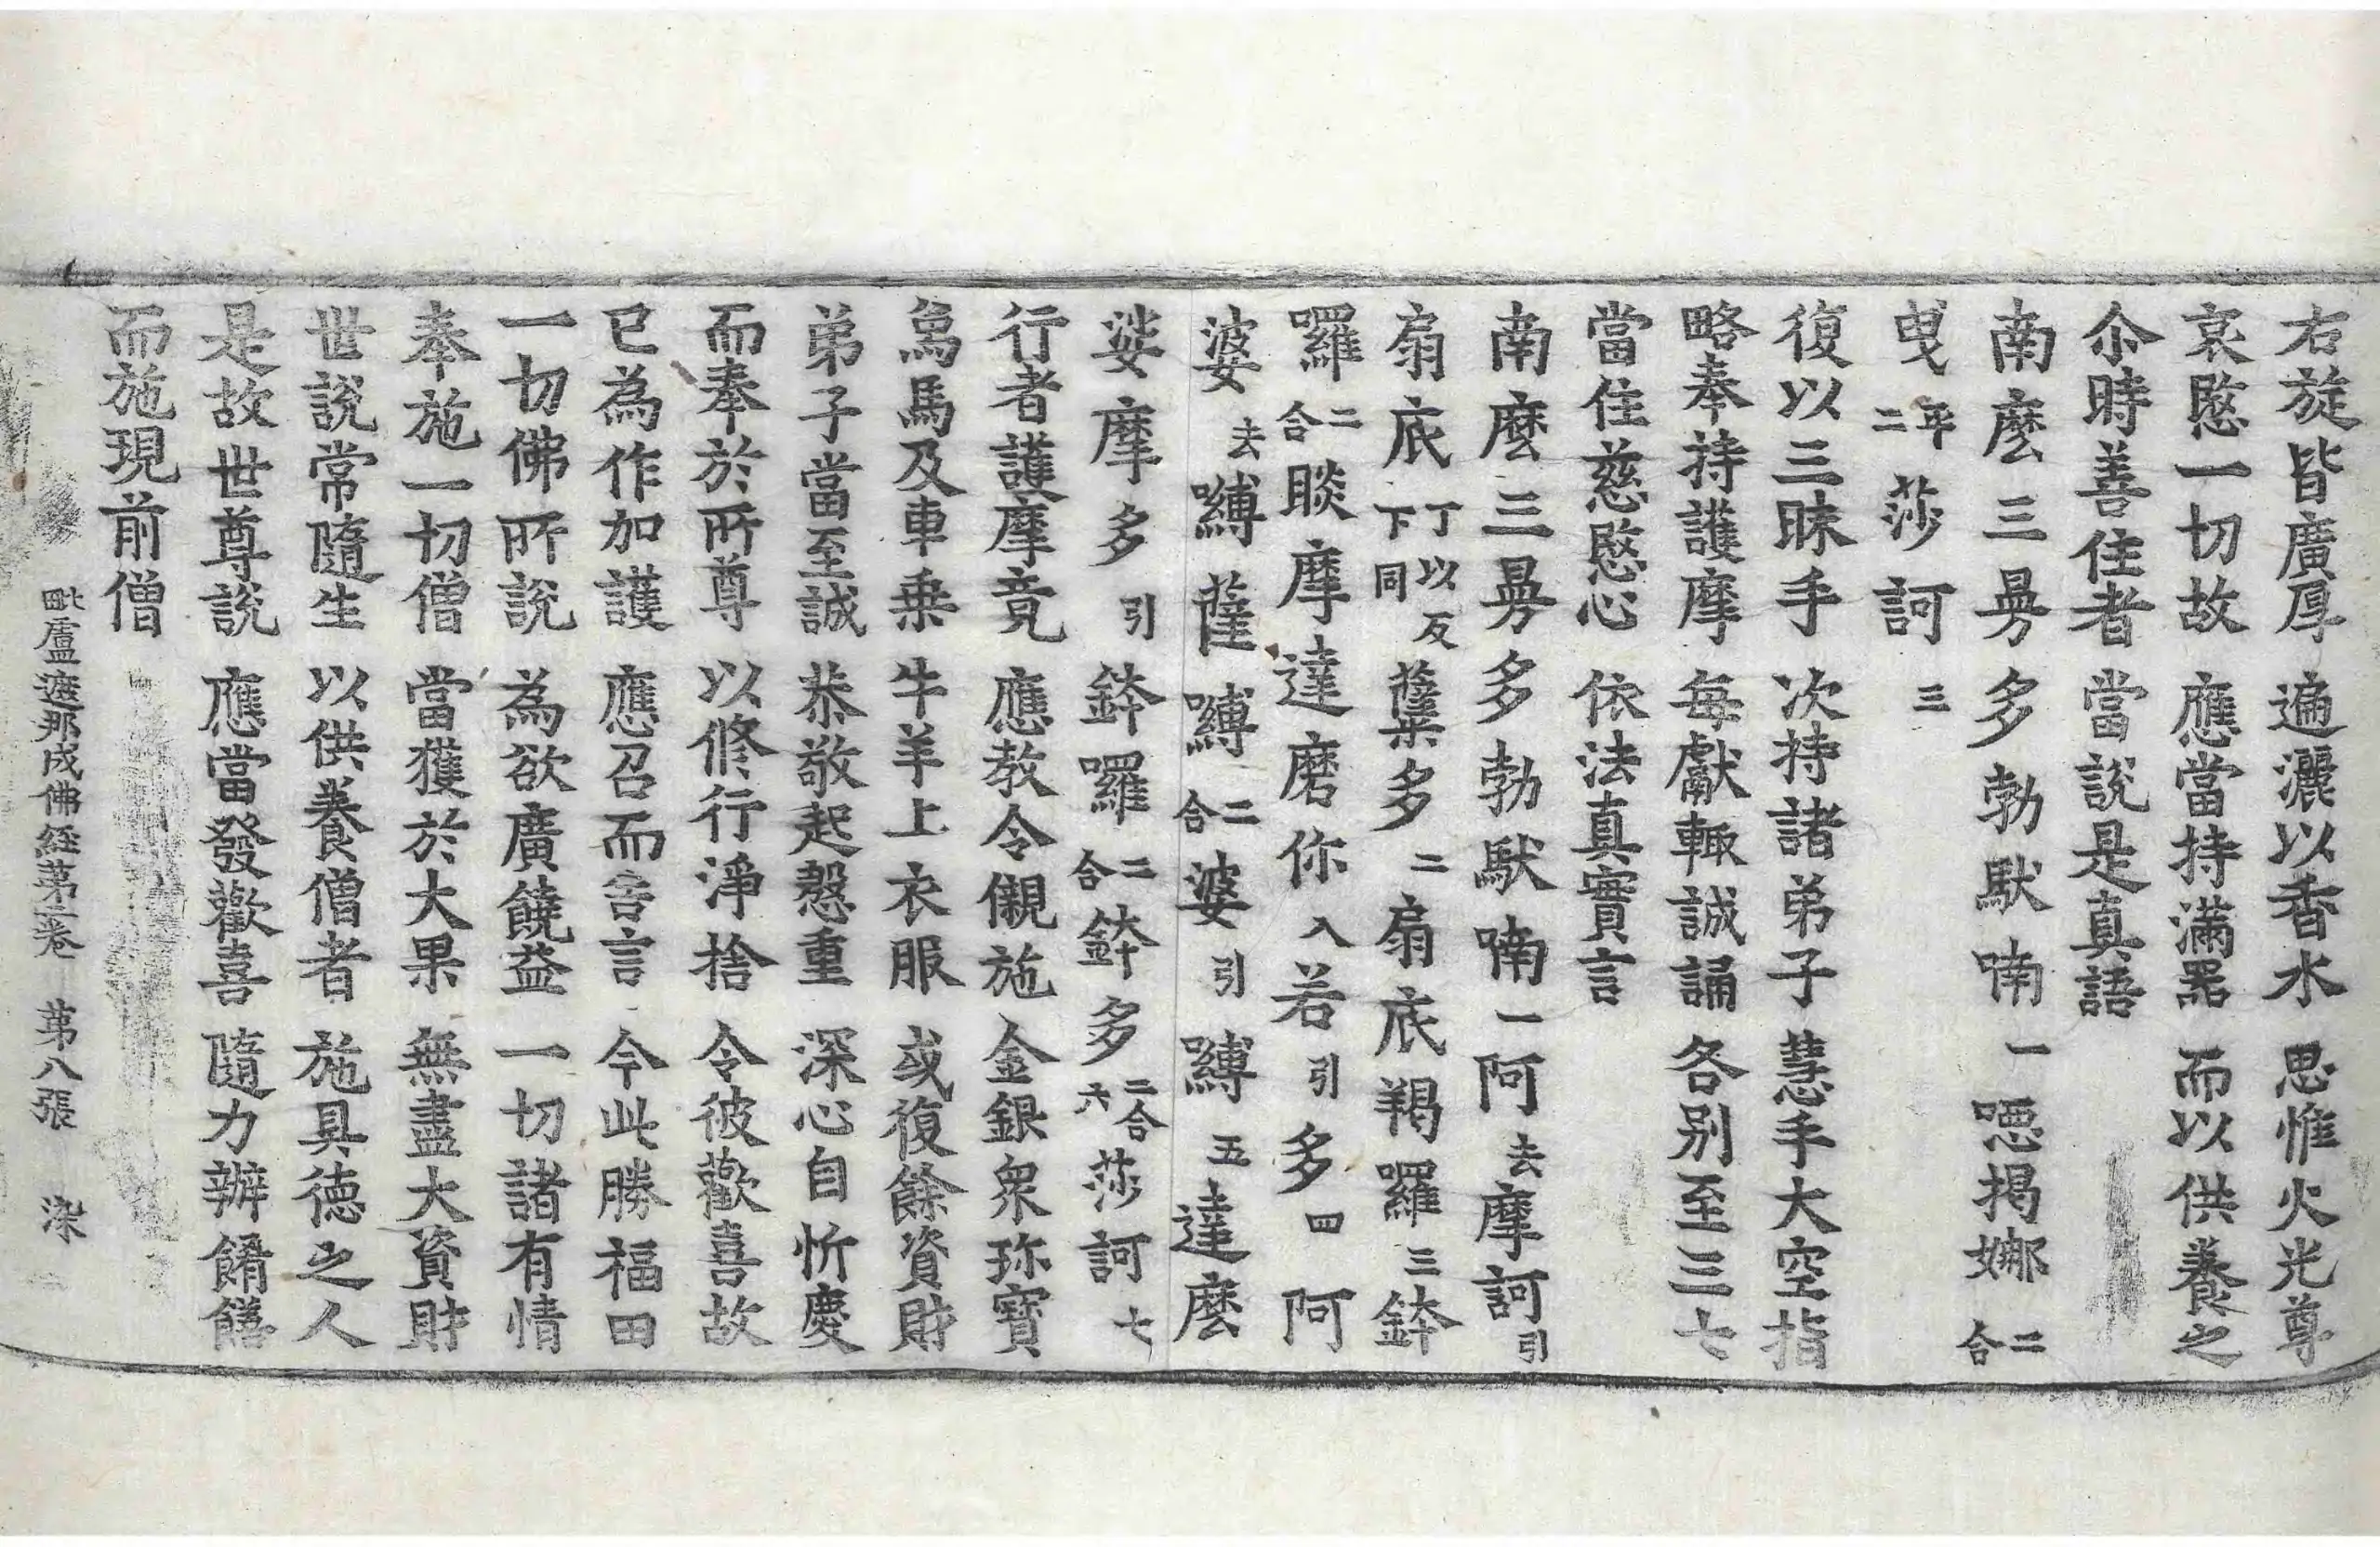 右旋皆廣厚　遍灑以香水　思惟火光尊
哀愍一切故　應當持滿器　而以供養之
尒時善住者　當說是真語
南麽三曼多勃馱喃一噁揭娜二合
曳平二莎訶三
復以三昧手　次持諸弟子　慧手大空指
略奉持護摩　每獻輙誠誦　各別至三七
當住慈愍心　依法真實言
南麽三曼多勃馱喃一阿去摩訶引
扇底丁以反下同蘖多二扇底羯囉三鉢
囉二合睒摩達磨你入若引多四阿
婆去嚩薩嚩二合婆引嚩五達麽
娑摩多引鉢囉二合鉢多二合六莎訶七
行者護摩竟　應教令儭施　金銀衆珎寶
爲馬及車乗　牛羊上衣服　或復餘資財
弟子當至誠　恭敬起慇重　深心自忻慶
而奉於所尊　以修行淨捨　令彼歡喜故
已為作加護　應召而告言　今此勝福田
一切佛所說　為欲廣饒益　一切諸有情
奉施一切僧　當獲於大果　無盡大資財
世說常隨生　以供養僧者　施具徳之人
是故世尊說　應當發歡喜　隨力辦餚饍
而施現前僧
毗盧遮那成佛經第二卷　第八張　染